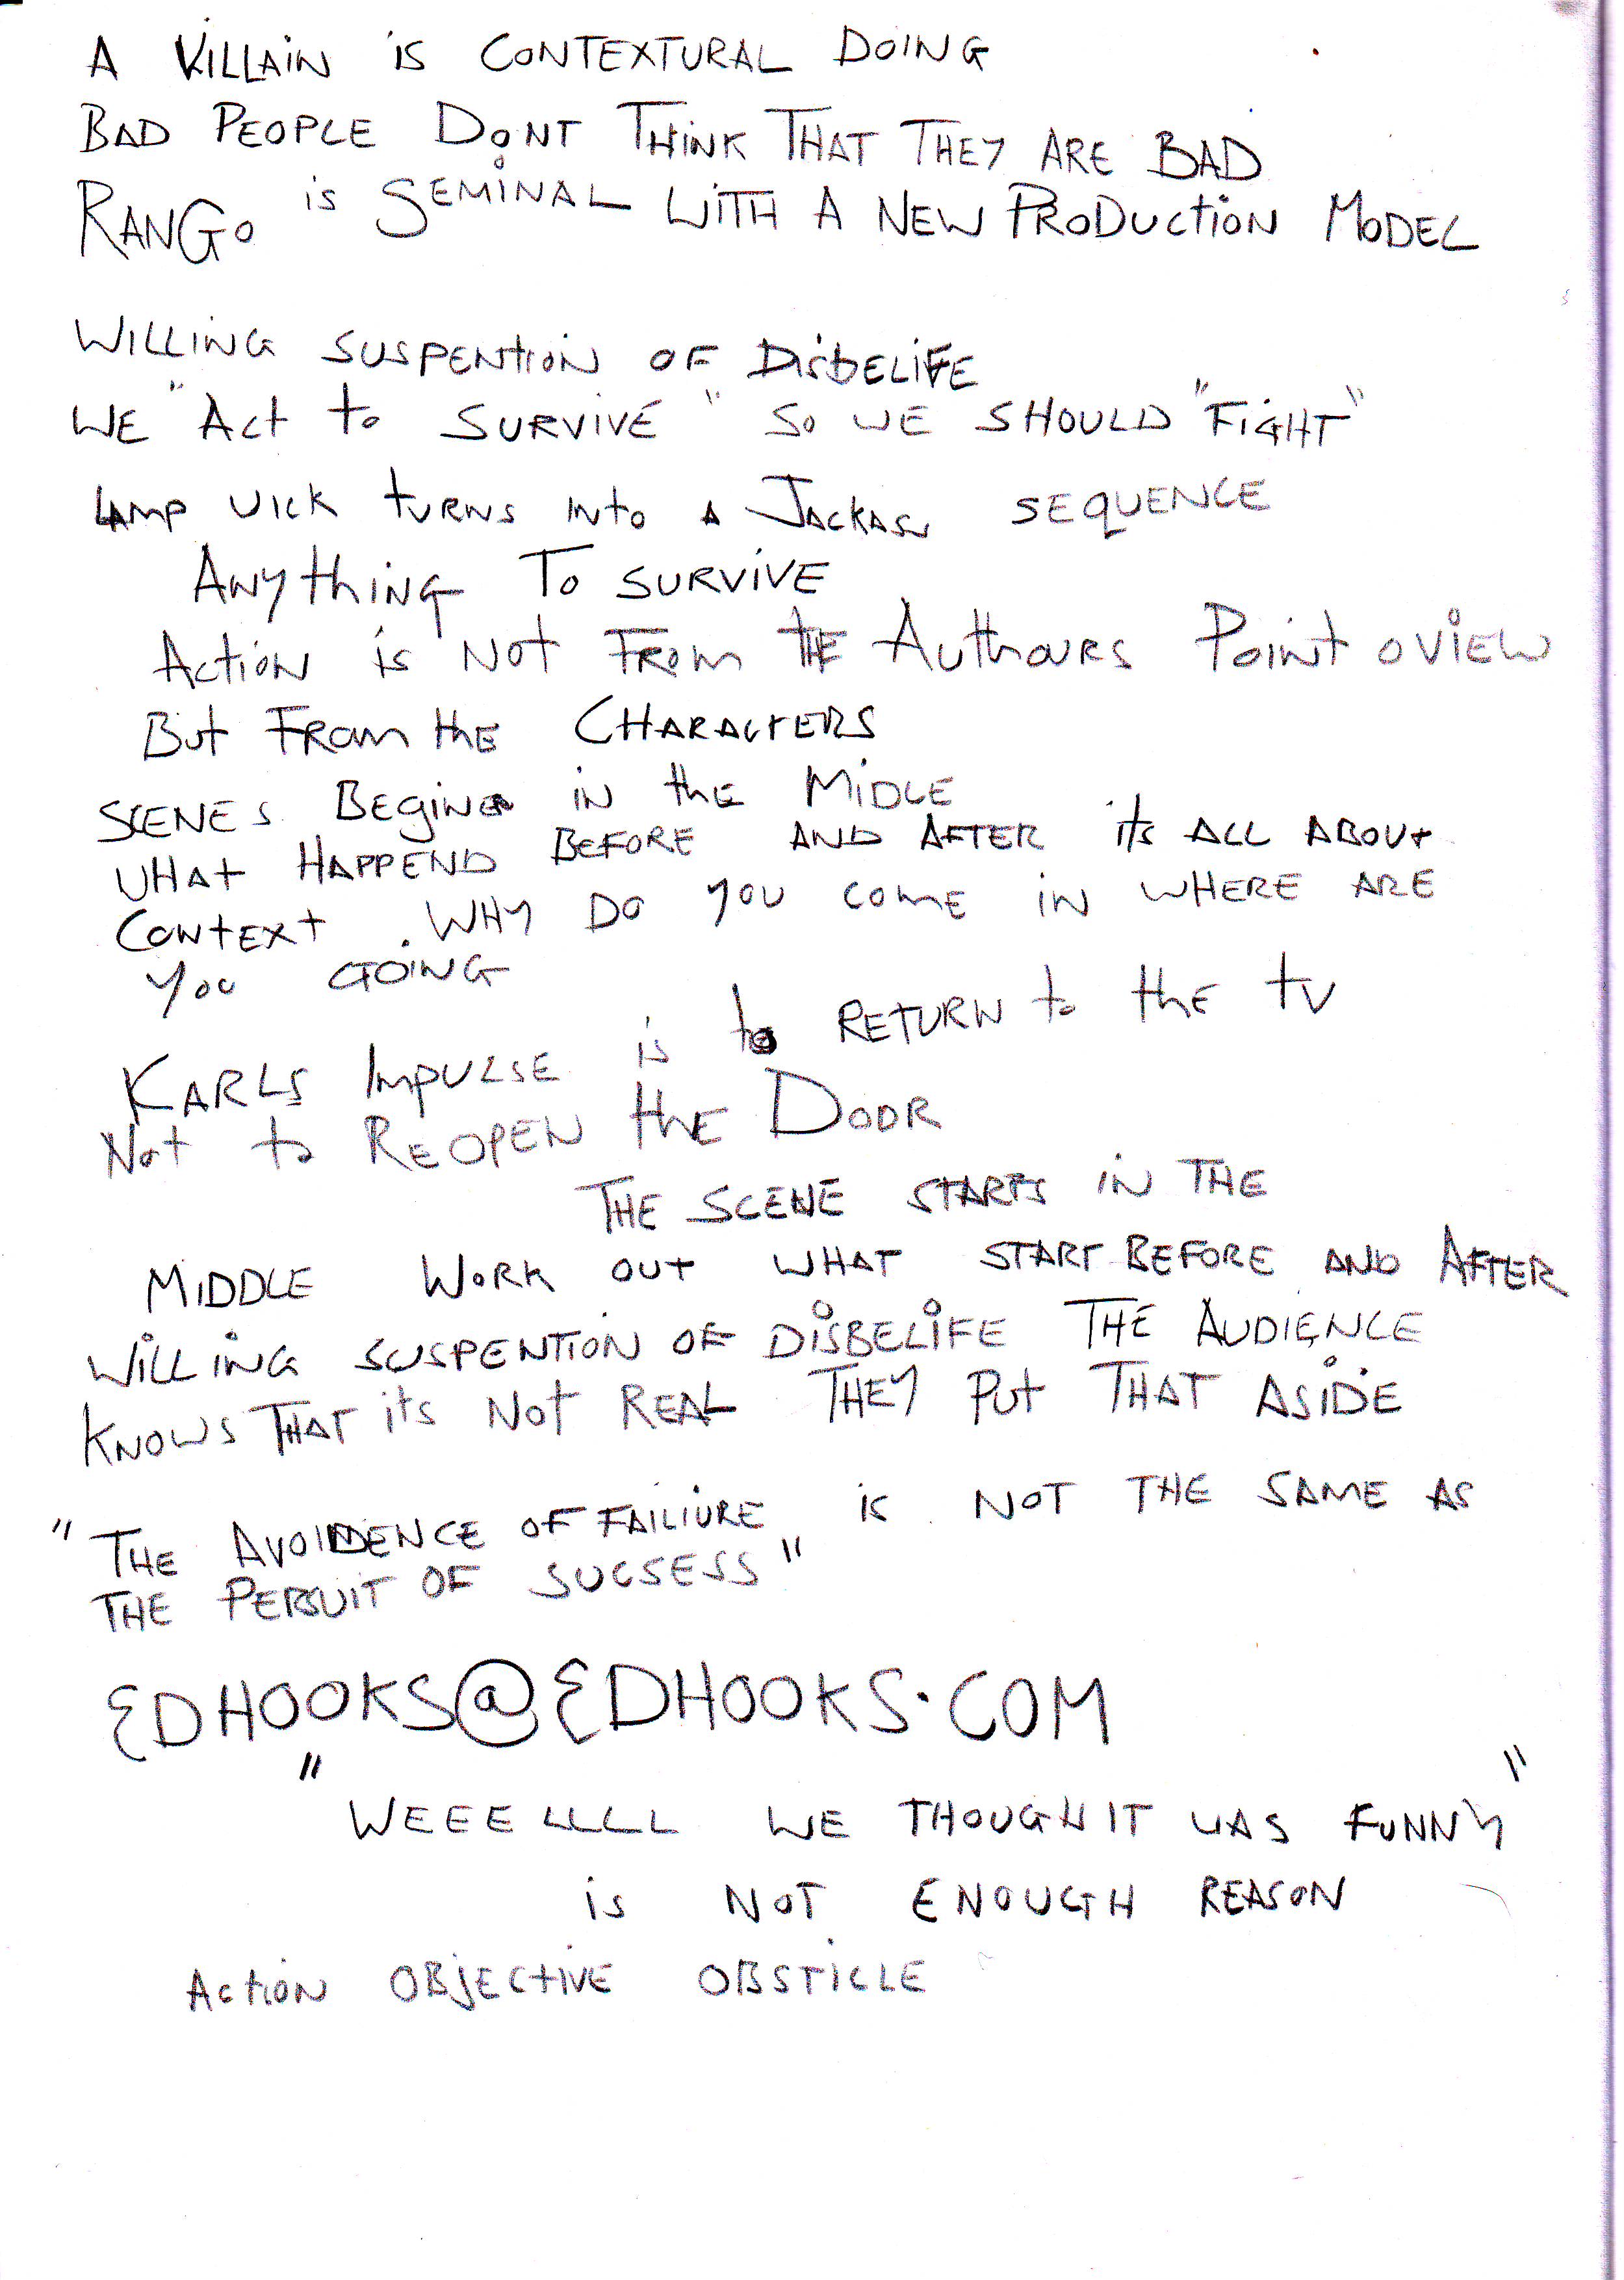 A VILLAIN is CONTEXTURAL DOING
BAD PEOPLE DONT THINK THAT THEY ARE BAD
RANGO is SEMINAL WITH A NEW PRODUCTION MODEL
WILLING SUSPENTION OF DISBELIFE
WE "ACT to SURVIVE" SO WE SHOULD "FIGHT"
LAMP WICK TURNS INTO A JACKASS SEQUENCE
ANYTHING TO SURVIVE
ACTION is NOT FROM THE AUTHOURS POINT O VIEW
BUT FROM THE CHARACTERS
SCENES BEGING IN THE MIDLE
WHAT HAPPEND BEFORE AND AFTER its ALL ABOUT
CONTEXT. WHY DO YOU COME IN WHERE ARE
YOU GOING
KARLS IMPULSE is to RETURN to the tv
NOT to REOPEN the DOOR
THE SCENE STARTS IN THE
MIDDLE WORK OUT WHAT START BEFORE AND AFTER
WILLING SUSPENTION OF DISBELIFE THE AUDIENCE
KNOWS THAT its NOT REAL THEY PUT THAT ASIDE
"THE AVOIDENCE OF FAILIURE is NOT THE SAME AS
THE PERSUIT OF SUCSESS"
EDHOOKS@EDHOOKS.COM
"WEEELLLL WE THOUGH IT WAS FUNNY"
is NOT ENOUGH REASON
ACTION OBJECTIVE OBSTICLE